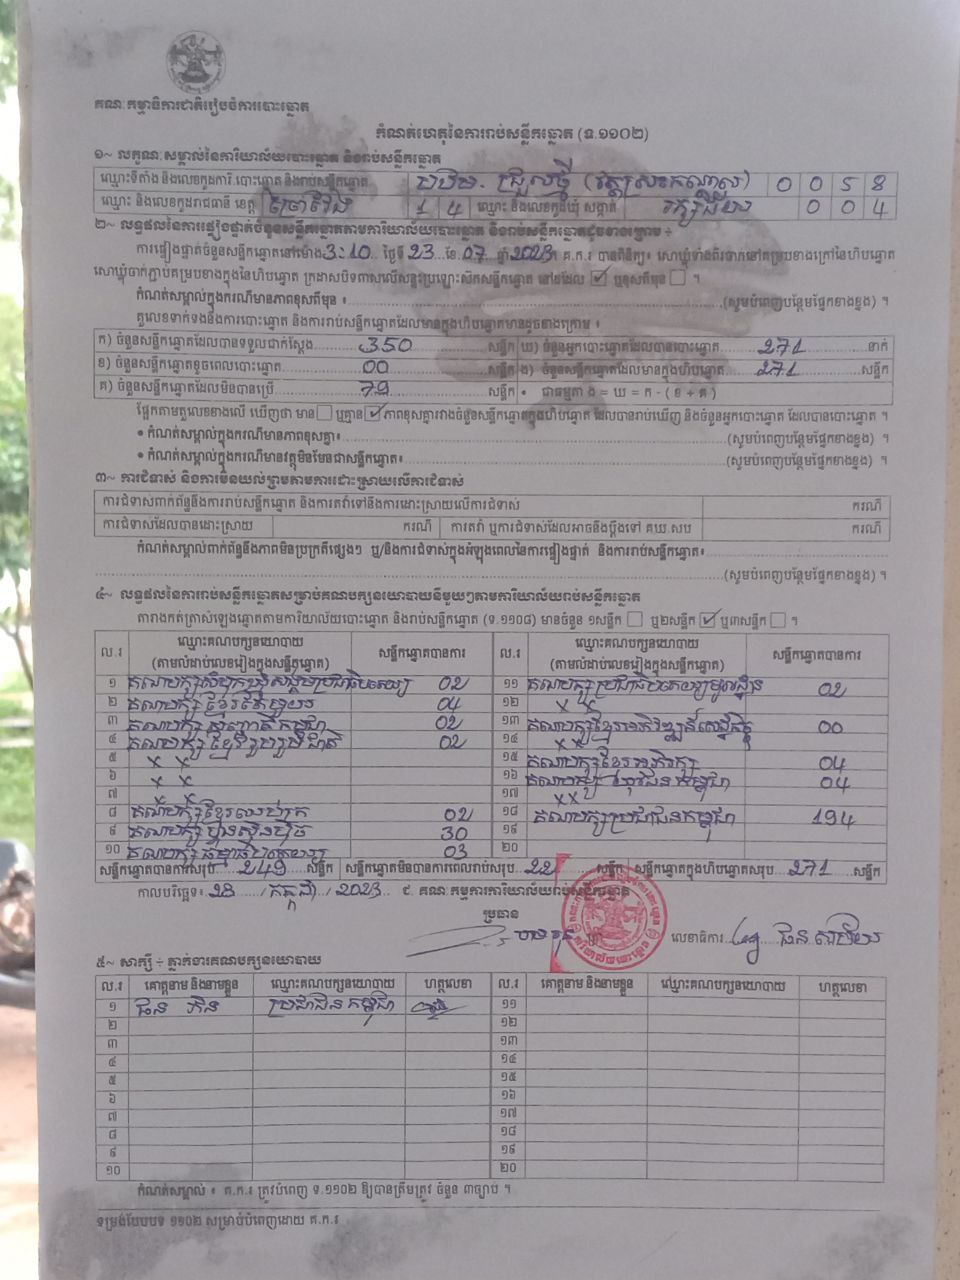 គណៈកម្មាធិការជាតិរៀបចំការបោះឆ្នោត
កំណត់ហេតុនៃការរាប់សន្លឹកឆ្នោត (ទ.១១០២)
១~ លក្ខណៈសម្គាល់នៃការិយាល័យបោះឆ្នោត និងរាប់សន្លឹកឆ្នោត
ឈ្មោះទីតាំង និងលេខកូដការិ.បោះឆ្នោត និងរាប់សន្លឹកឆ្នោត 0 0 5 8
ឈ្មោះ និងលេខកូដរាជធានី ខេត្ត ព្រៃវែង 1 4 ឈ្មោះ និងលេខកូដឃុំ សង្កាត់ 0 0 4
២~ លទ្ធផលនៃការផ្ទៀងផ្ទាត់ចំនួនសន្លឹកឆ្នោតតាមការិយាល័យបោះឆ្នោត និងរាប់សន្លឹកឆ្នោតដូចខាងក្រោម ÷
ការផ្ទៀងផ្ទាត់ចំនួនសន្លឹកឆ្នោតនៅម៉ោង 3:10 ថ្ងៃទី 23 ខែ 07 ឆ្នាំ 2023 គ.ក.រ បានពិនិត្យ៖ សោឃ្លុំទាំងពីរចាកនៅគម្របខាងក្រៅនៃហិបឆ្នោត
កំណត់សម្គាល់ក្នុងករណីមានភាពខុសពីមុន ៖ (សូមបំពេញបន្ថែមផ្នែកខាងខ្នង) ។
តួលេខទាក់ទងនឹងការបោះឆ្នោត និងការរាប់សន្លឹកឆ្នោតដែលមានក្នុងហិបឆ្នោតមានដូចខាងក្រោម ៖
ក) ចំនួនសន្លឹកឆ្នោតដែលបានទទួលជាក់ស្តែង 350 សន្លឹក ឃ) ចំនួនអ្នកបោះឆ្នោតដែលបានបោះឆ្នោត 271 នាក់
ខ) ចំនួនសន្លឹកឆ្នោតខូចពេលបោះឆ្នោត 00 សន្លឹក ង) ចំនួនសន្លឹកឆ្នោតដែលមានក្នុងហិបឆ្នោត 271 សន្លឹក
គ) ចំនួនសន្លឹកឆ្នោតដែលមិនបានប្រើ 79 សន្លឹក • ជាធម្មតា ង = ឃ = ក - ( ខ + គ )
ផ្អែកតាមតួលេខខាងលើ ឃើញថា មាន ឬគ្មាន ភាពខុសគ្នារវាងចំនួនសន្លឹកឆ្នោតក្នុងហិបឆ្នោត ដែលបានរាប់ឃើញ និងចំនួនអ្នកបោះឆ្នោត ដែលបានបោះឆ្នោត ។
• កំណត់សម្គាល់ក្នុងករណីមានភាពខុសគ្នា៖ (សូមបំពេញបន្ថែមផ្នែកខាងខ្នង) ។
• កំណត់សម្គាល់ក្នុងករណីមានវត្ថុមិនមែនជាសន្លឹកឆ្នោត៖ (សូមបំពេញបន្ថែមផ្នែកខាងខ្នង) ។
៣~ ការជំទាស់ និងការមិនយល់ព្រមតាមការដោះស្រាយលើការជំទាស់
ការជំទាស់ពាក់ព័ន្ធនឹងការរាប់សន្លឹកឆ្នោត និងការតវ៉ាទៅនឹងការដោះស្រាយលើការជំទាស់ ករណី
ការជំទាស់ដែលបានដោះស្រាយ ករណី ការតវ៉ា ឬការជំទាស់ដែលអាចនឹងប្តឹងទៅ គឃ.សប ករណី
កំណត់សម្គាល់ពាក់ព័ន្ធនឹងភាពមិនប្រក្រតីផ្សេងៗ ឬ/និងការជំទាស់ក្នុងអំឡុងពេលនៃការផ្ទៀងផ្ទាត់ និងការរាប់សន្លឹកឆ្នោត៖
(សូមបំពេញបន្ថែមផ្នែកខាងខ្នង) ។
៤~ លទ្ធផលនៃការរាប់សន្លឹកឆ្នោតសម្រាប់គណបក្សនយោបាយនីមួយៗតាមការិយាល័យរាប់សន្លឹកឆ្នោត
តារាងកត់ត្រាសំឡេងឆ្នោតតាមការិយាល័យបោះឆ្នោត និងរាប់សន្លឹកឆ្នោត (ទ.១១០៨) មានចំនួន ១សន្លឹក ឬ២សន្លឹក ឬ៣សន្លឹក ។
ល.រ ឈ្មោះគណបក្សនយោបាយ (តាមលំដាប់លេខរៀងក្នុងសន្លឹកឆ្នោត) សន្លឹកឆ្នោតបានការ ល.រ ឈ្មោះគណបក្សនយោបាយ (តាមលំដាប់លេខរៀងក្នុងសន្លឹកឆ្នោត) សន្លឹកឆ្នោតបានការ
១ 02 ១១ 02
២ 04 ១២ x x
៣ 02 ១៣ 00
៤ គណបក្សខ្មែររួបរួមជាតិ 02 ១៤ x x
៥ x x ១៥ គណបក្សខ្មែរអភិរក្ស 04
៦ x x ១៦ 04
៧ x ១៧ xx
៨ 02 ១៨ គណបក្សប្រជាជនកម្ពុជា 194
៩ គណបក្សហ៊្វុនស៊ិនប៉ិច 30 ១៩
១០ គណបក្សធម្មាធិបតេយ្យ 03 ២០
សន្លឹកឆ្នោតបានការសរុប 249 សន្លឹក សន្លឹកឆ្នោតមិនបានការពេលរាប់សរុប 22 សន្លឹក សន្លឹកឆ្នោតក្នុងហិបឆ្នោតសរុប 271 សន្លឹក
កាលបរិច្ឆេទ៖ 23 / កក្កដា / 2023 ជ. គណៈកម្មការការិយាល័យរាប់សន្លឹកឆ្នោត
ប្រធាន
លេខាធិការ
៥~ សាក្សី ÷ ភ្នាក់ងារគណបក្សនយោបាយ
ល.រ គោត្តនាម និងនាមខ្លួន ឈ្មោះគណបក្សនយោបាយ ហត្ថលេខា ល.រ គោត្តនាម និងនាមខ្លួន ឈ្មោះគណបក្សនយោបាយ ហត្ថលេខា
១ ប្រជាជនកម្ពុជា ១១
២ ១២
៣ ១៣
៤ ១៤
៥ ១៥
៦ ១៦
៧ ១៧
៨ ១៨
៩ ១៩
១០ ២០
កំណត់សម្គាល់ ៖ គ.ក.រ ត្រូវបំពេញ ទ.១១០២ ឱ្យបានត្រឹមត្រូវ ចំនួន ៣ច្បាប់ ។
ទម្រង់បែបបទ ១១០២ សម្រាប់បំពេញដោយ គ.ក.រ